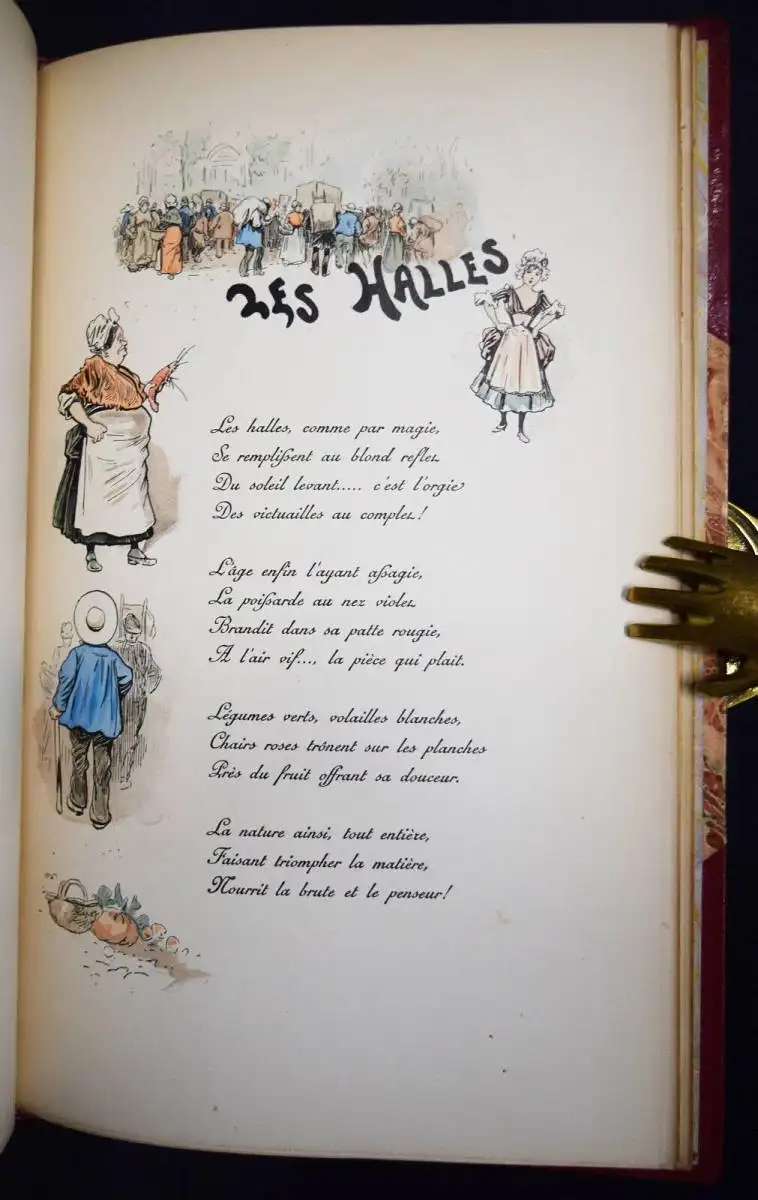 LES HALLES
Les halles, comme par magie,
Se remplißent au blond reflet
Du soleil levant..... c'est l'orgie
Des victuailles au complet!
L'âge enfin l'ayant aßagie,
La poißarde au nez violet
Brandit dans sa patte rougie,
A l'air vif..., la pièce qui plait.
Légumes verts, volailles blanches,
Chairs roses trônent sur les planches
Près du fruit offrant sa douceur.
La nature ainsi, tout entière,
Faisant triompher la matière,
Nourrit la brute et le penseur!